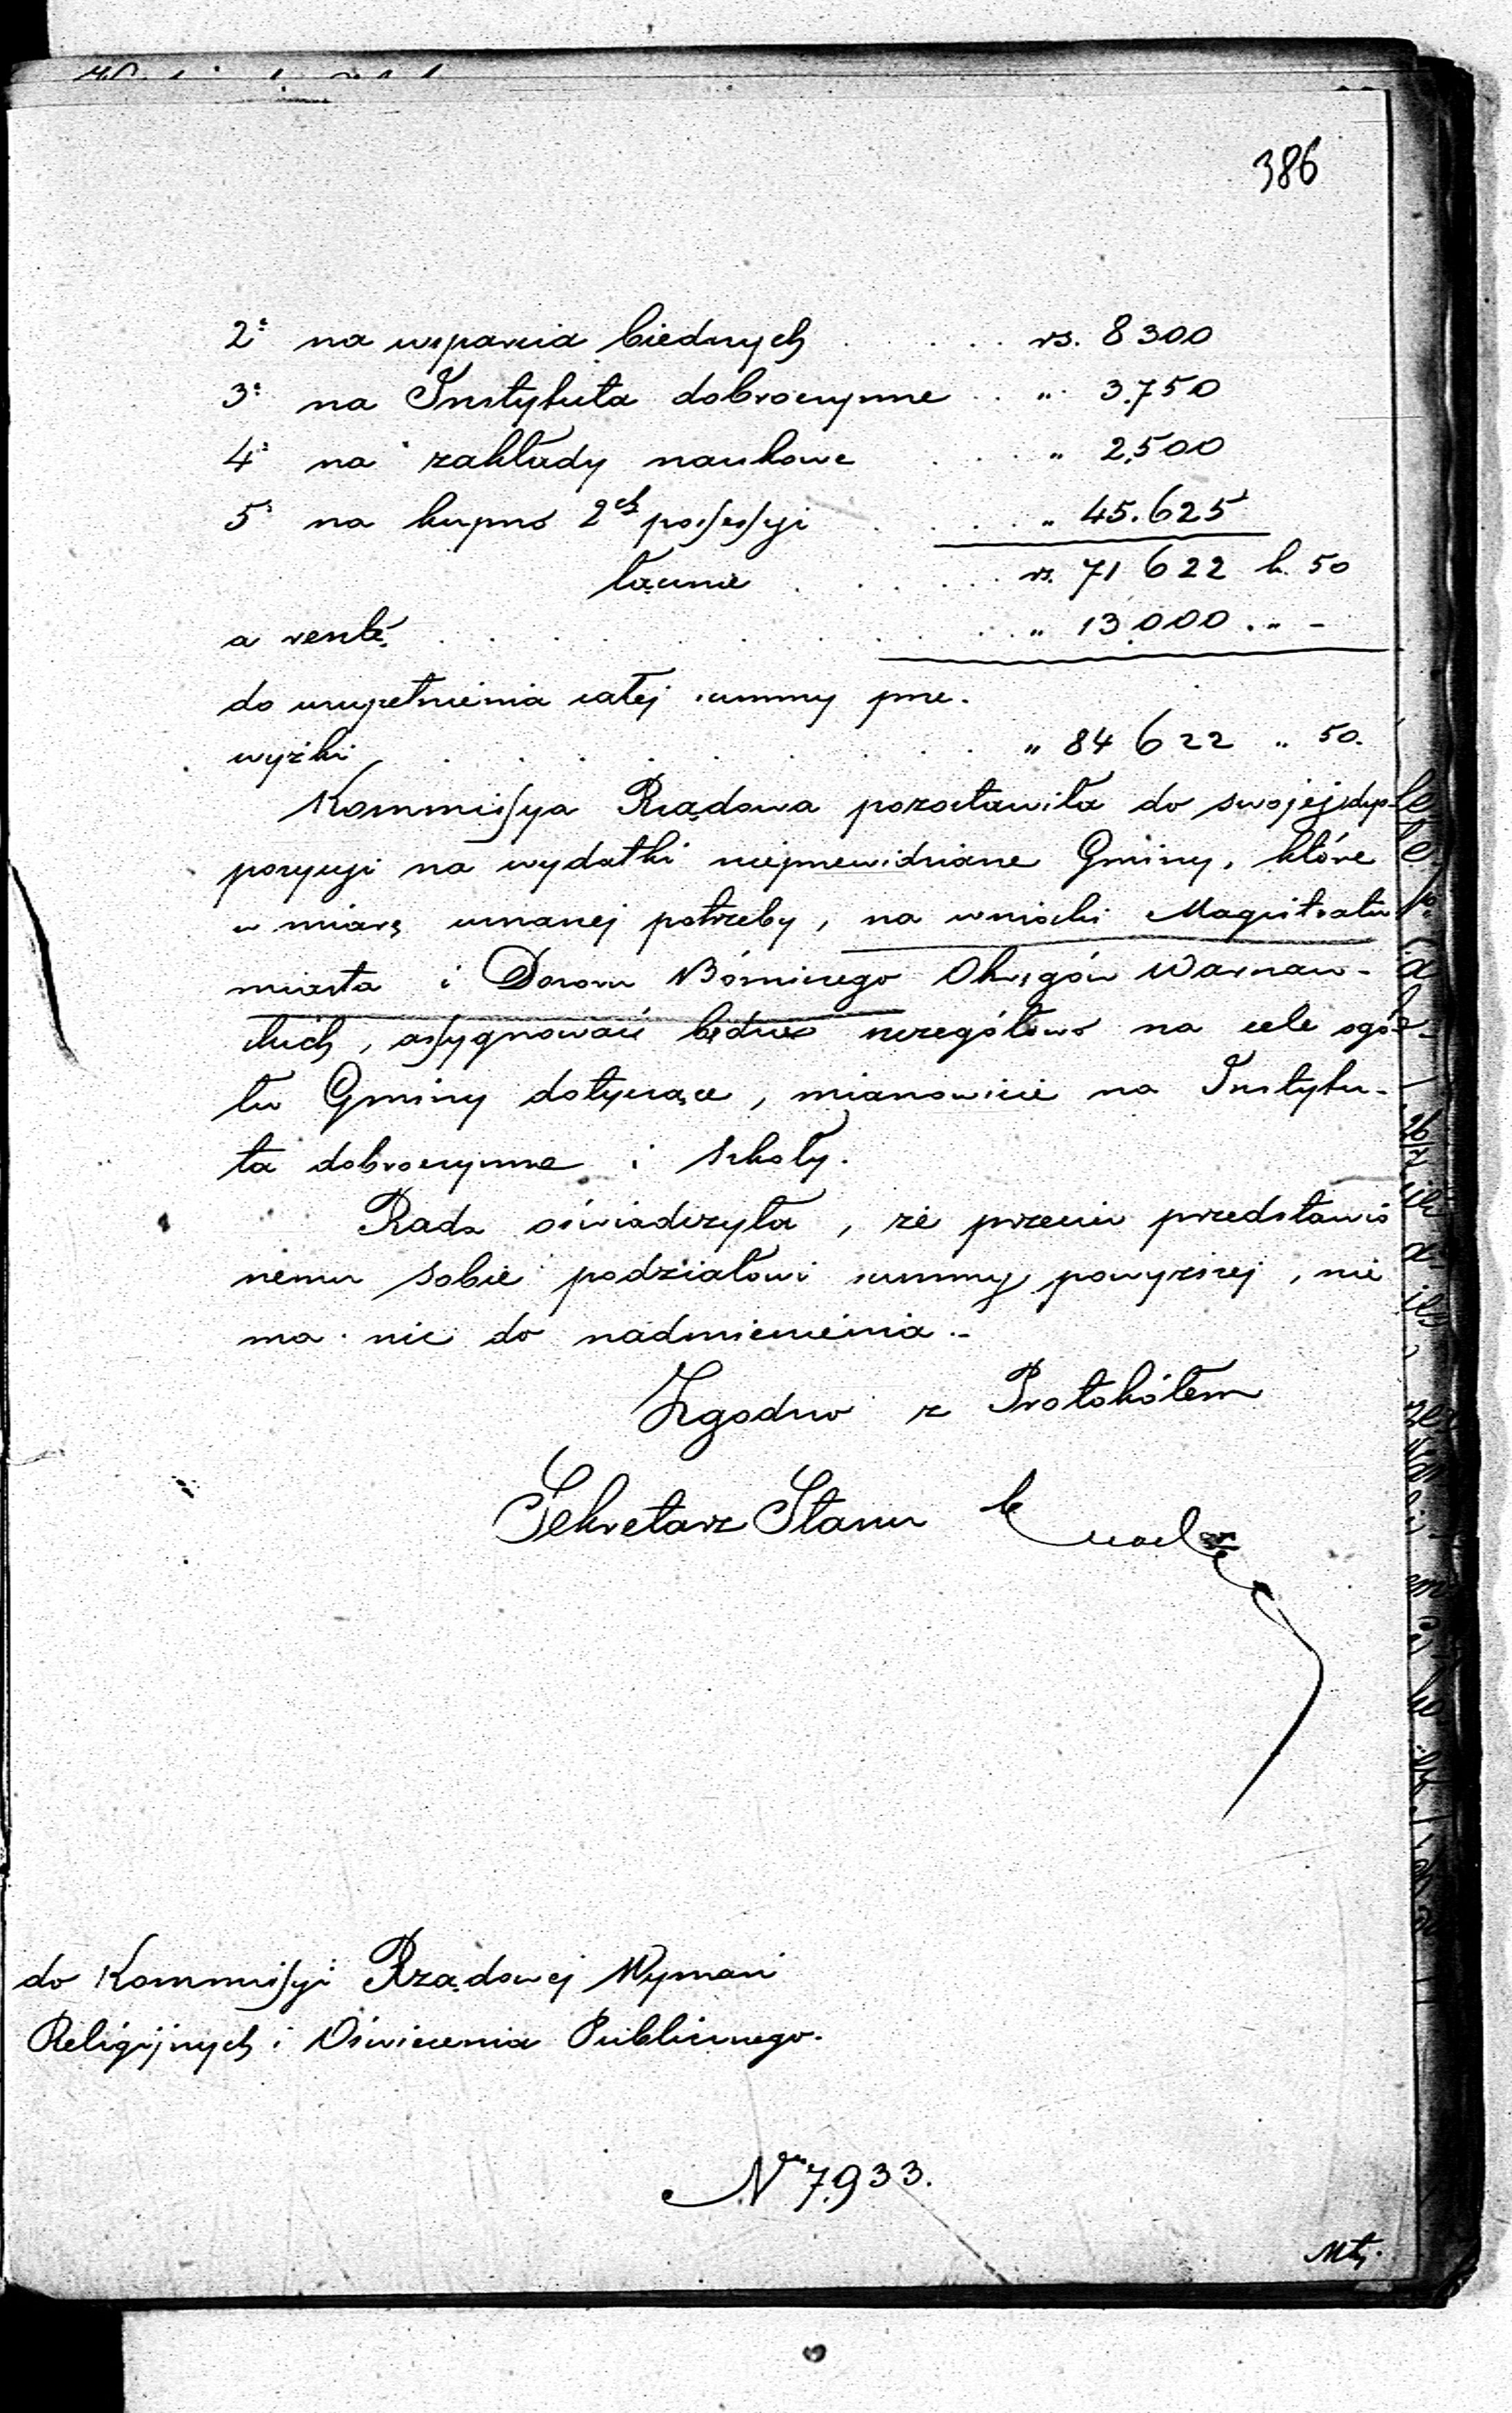 386
2° na wsparcia biednych . . . . . rs. 8300
3° na Instytuta dobroczynne . . „ 3.750
4° na zakłady naukowe . . . . „ 2,500
5° na kupno 2ch possessyi . . . . „ 45.625
łącznie . . . . . . rs. 71 622 k. 50
a resztę . . . . . . . . . . . „ 13,000 . „ -
do uzupełnienia całej summy prze-
wyżki . . . . . . . . . „ 84 622 „ 50.
Kommissya Rządowa pozostawiła do swojej dys-
pozycyi na wydatki nieprzewidziane Gminy, które
w miarę uznanej potrzeby, na wnioski Magistratu
miasta i Dozoru Bóżniczego Okręgów Warszaw-
skich, assygnować będzie szczegółowo na cele ogó-
łu Gminy dotyczące, mianowicie na Instytu-
ta dobroczynne i szkoły.
Rada oświadczyła, że przeciw przedstawio
nemu sobie podziałowi summy powyższej, nie
ma nic do nadmienienia.-
Zgodno z Protokółem
Sekretarz Stanu
do Kommissyi Rządowej Wyznań
Religijnych i Oświecenia Publicznego.
N 7,933.